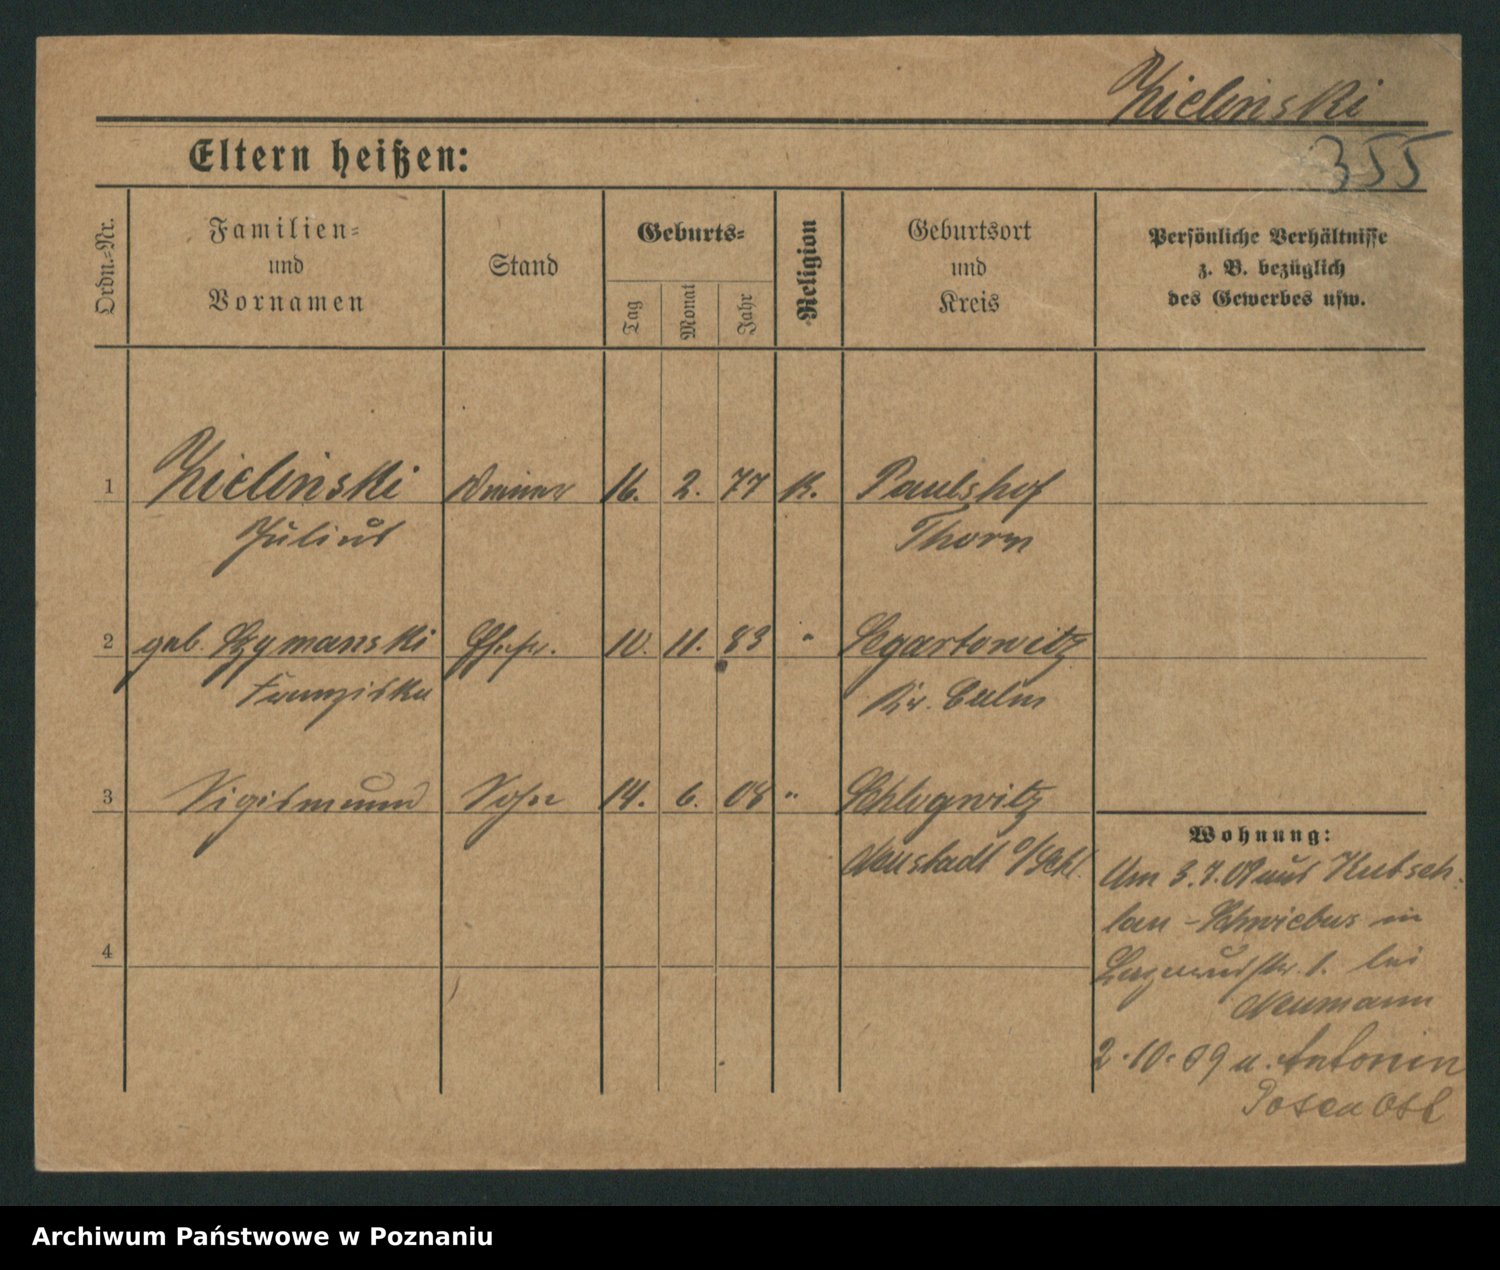 Zielinski
355
Eltern heißen:
Ordn.-Nr.
Familien-
und
Vornamen
Stand
Geburts-
Tag
Monat
Jahr
Religion
Geburtsort
und
Kreis
Persönliche Verhältnisse
z. B. bezüglich
des Gewerbes usw.
1 Zielinski 16. 2. 77 K. Paulshof
Julius Thorn
2 geb. Szymanski Ehefr. 10. 11. 83 " Sgartowitz
Franziska Kr. Culm
3 Sigismund Sohn 14. 6. 08 " Schlogwitz
Neustadt o/Schl.
4
Wohnung:
Am 3.7.09 aus
- Schwiebus in
1. bei
Neumann
2.10.09 n. Antonin
Posen Ost
Archiwum Państwowe w Poznaniu